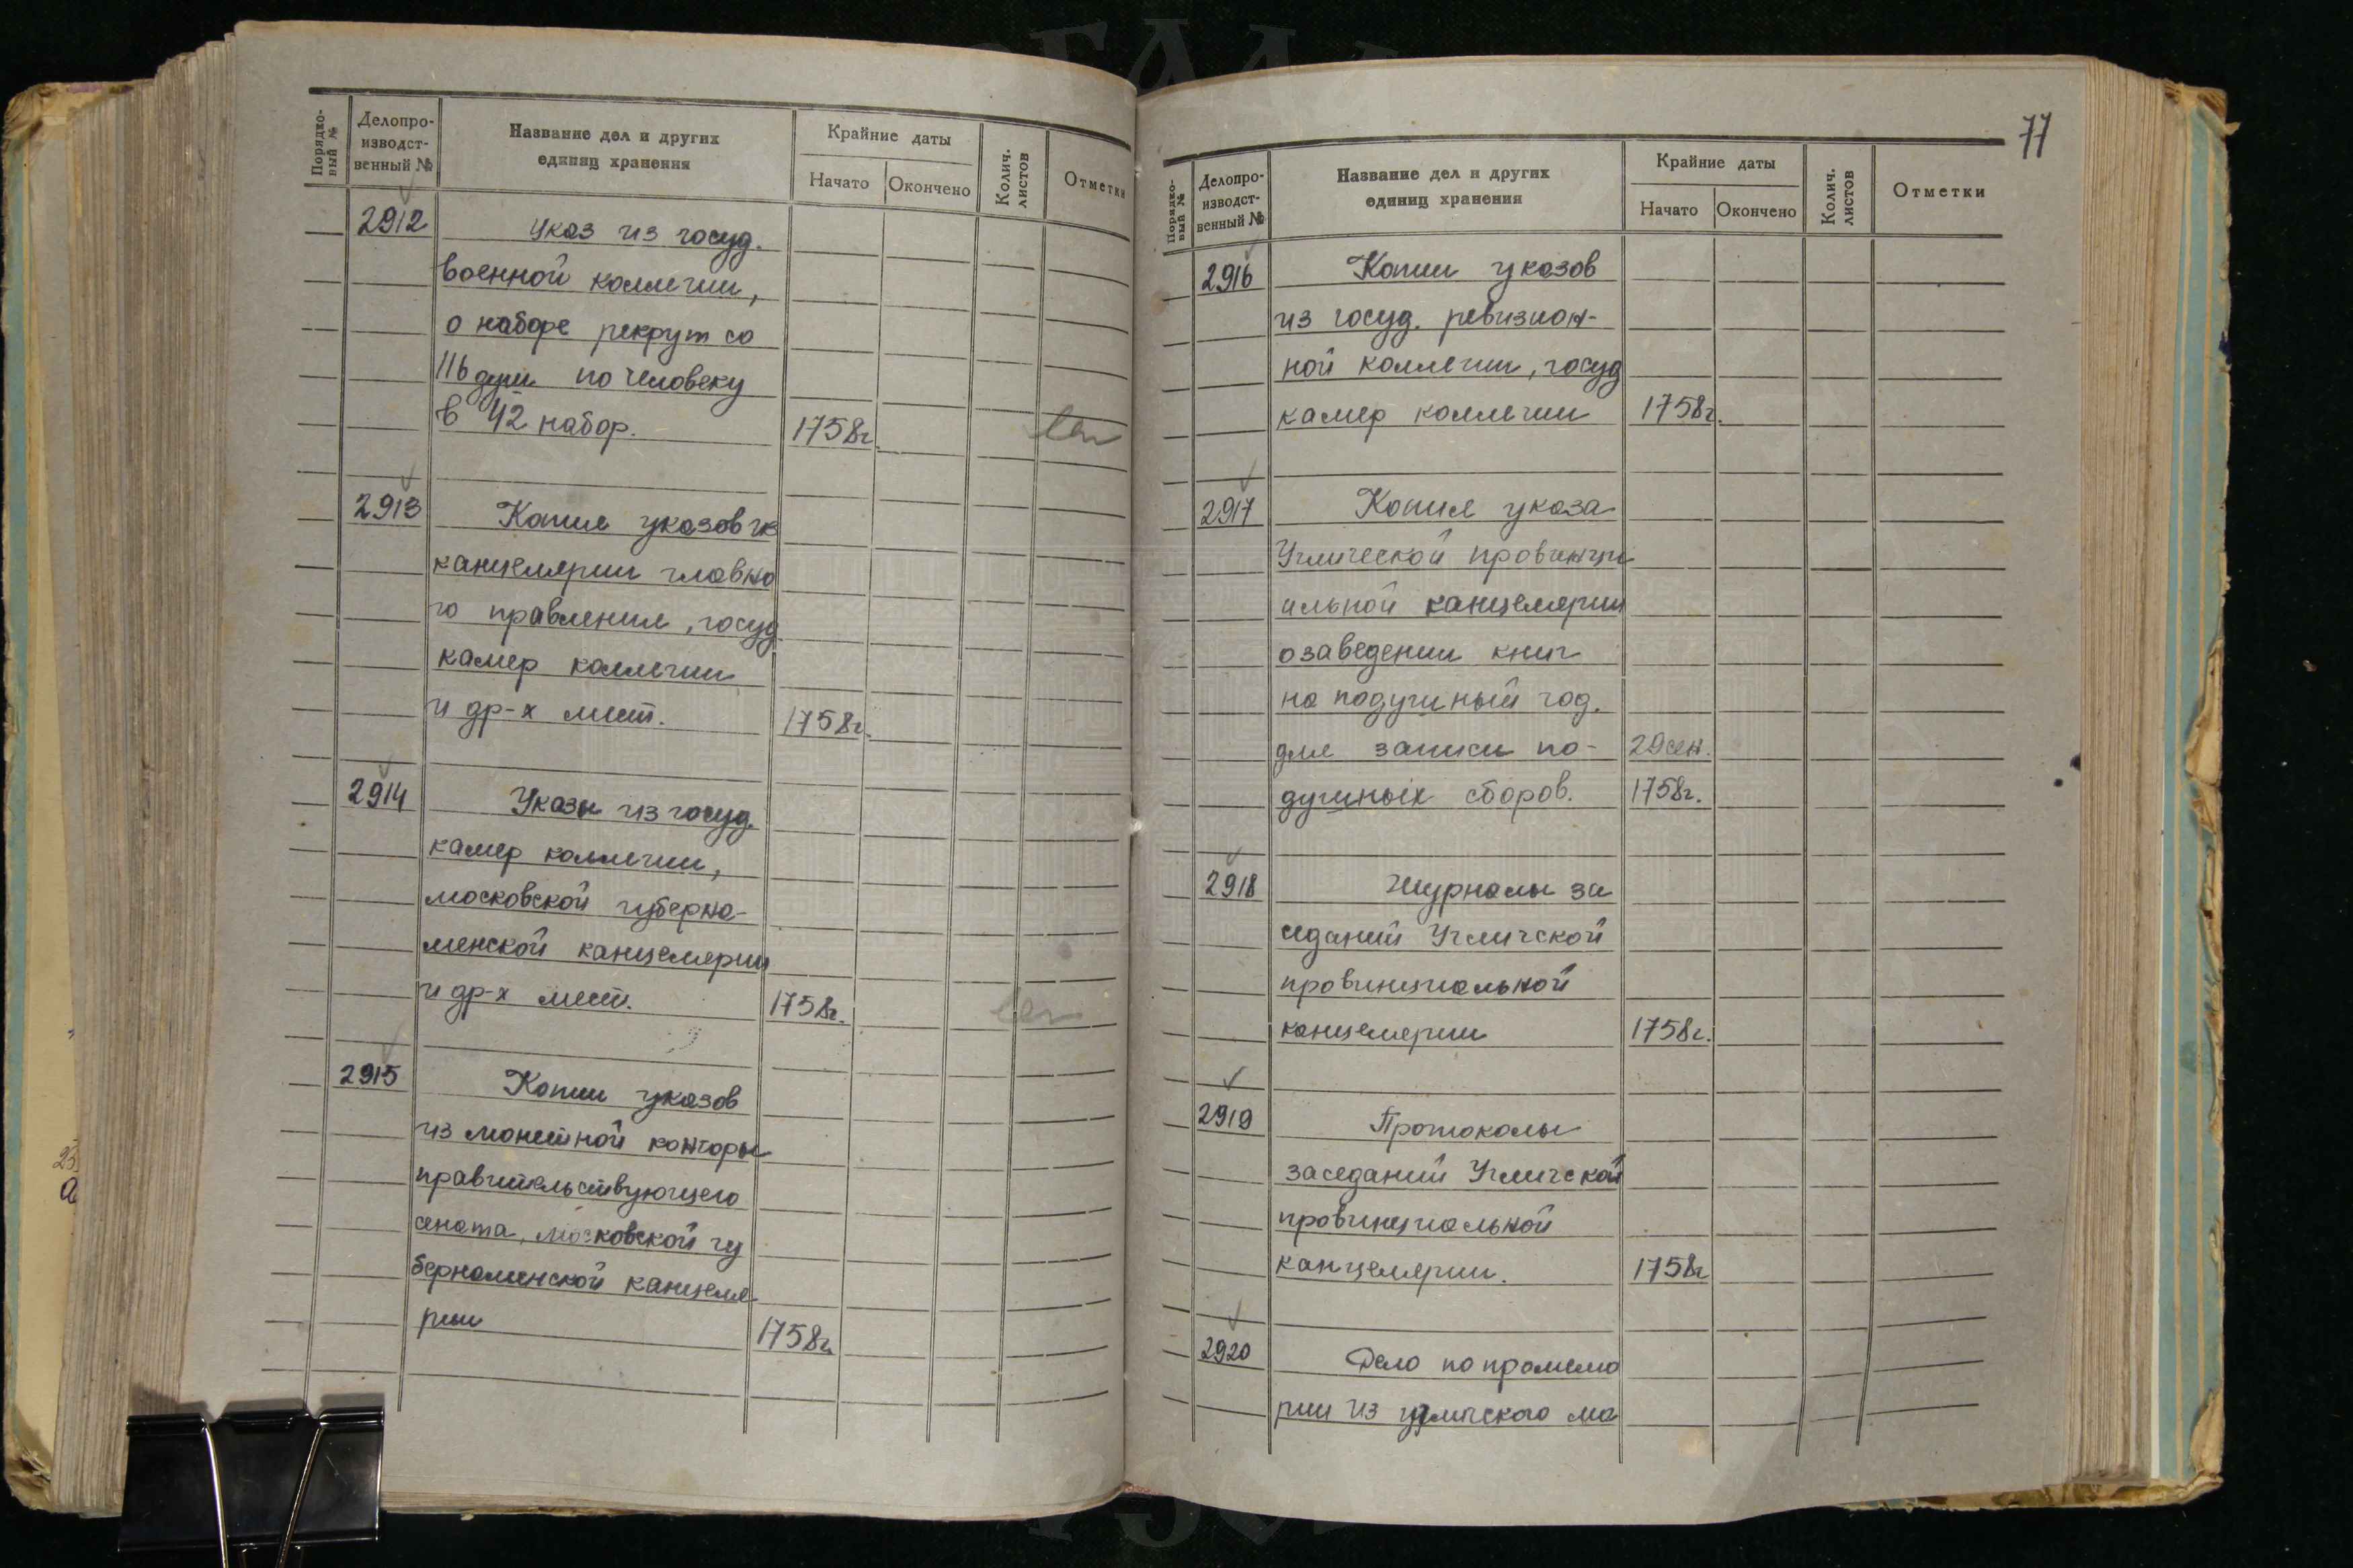 77
Порядко-
вый №
Делопро-
изводст-
венный №
Название дел и других
единиц хранения
Крайние даты
Начато
Окончено
Колич.
листов
Отметки
2912
Указ из госуд.
военной коллегии,
о наборе рекрут со
116 душ по человеку
в 42 набор.
1758г.
2913
Копие указов из
канцелярии главно
го правления, госуд
камер коллегии
и др-х мест.
1758г.
2914
Указы из госуд.
камер коллегии,
московской губерна-
менской канцелярии
и др-х мест.
1758г.
2915
Копии указов
из монетной конторы
правительствующего
сената, московской гу
бернаменской канцеля
рии
1758г.
Порядко-
вый №
Делопро-
изводст-
венный №
Название дел и других
единиц хранения
Крайние даты
Начато
Окончено
Колич.
листов
Отметки
2916
Копии указов
из госуд. ревизион-
ной коллегии, госуд
камер коллегии
1758г.
2917
Копия указа
Углической провинци
альной канцелярии
о заведении книг
на подушный год.
для записи по-
29 сен.
душных сборов.
1758г.
2918
Журналы за
седаний Угличской
провинциальной
канцелярии
1758г.
2919
Протоколы
заседаний Угличской
провинциальной
канцелярии.
1758г
2920
Дело по промемо
рии из угличского ма